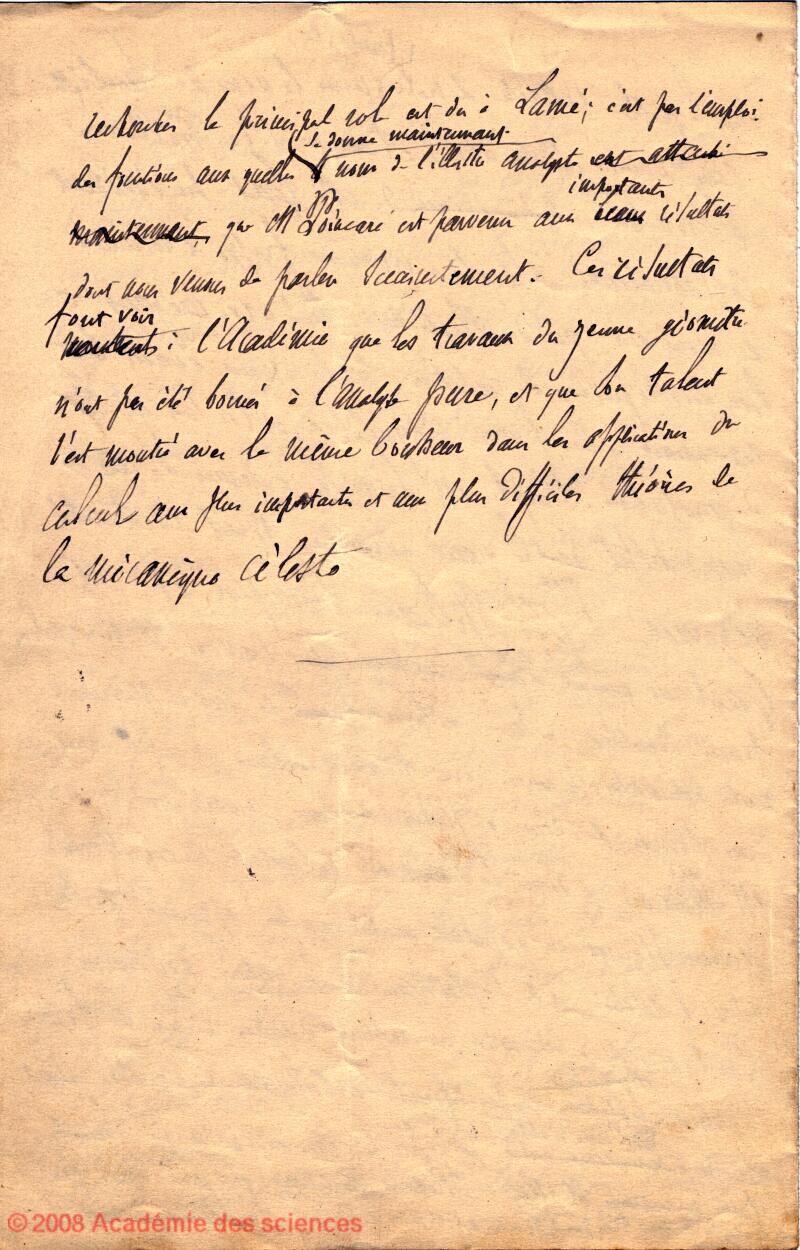 recherches le principal rôle est dû à Lamé; c'est par l'emploi
se donne maintenant
des fonctions aux quelles le nom de l'illustre analyste est attaché
importants
maintenant, que Mr Poincaré est parvenu aux beaux résultats
dont nous venons de parler succinctement. Ces résultats
font voir
montrent à l'Académie que les travaux du jeune géomètre
n'ont pas été bornés à l'analyse pure, et que son talent
s'est montré avec le même bonheur dans les applications du
calcul aux plus importantes et aux plus difficiles théories de
la mécanique céleste
© 2008 Académie des sciences